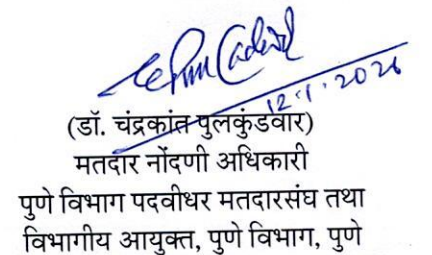 12.1.2026
(डॉ. चंद्रकांत पुलकुंडवार)
मतदार नोंदणी अधिकारी
पुणे विभाग पदवीधर मतदारसंघ तथा
विभागीय आयुक्त, पुणे विभाग, पुणे